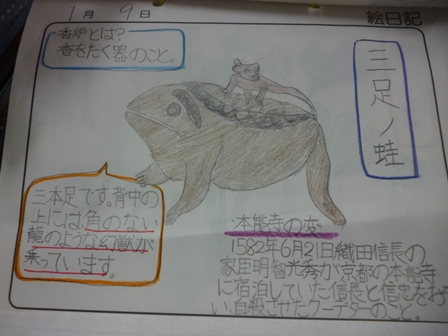 1月 9日 絵日記
香炉とは?
香をたく器のこと。
三足ノ蛙
三本足です。背中の
上には角のない
龍のような幻獣が
乗っています。
本能寺の変
1582年6月21日織田信長の
家臣明智光秀が京都の本能寺
に宿泊していた信長と信忠をおそ
い、自殺させたクーデターのこと。